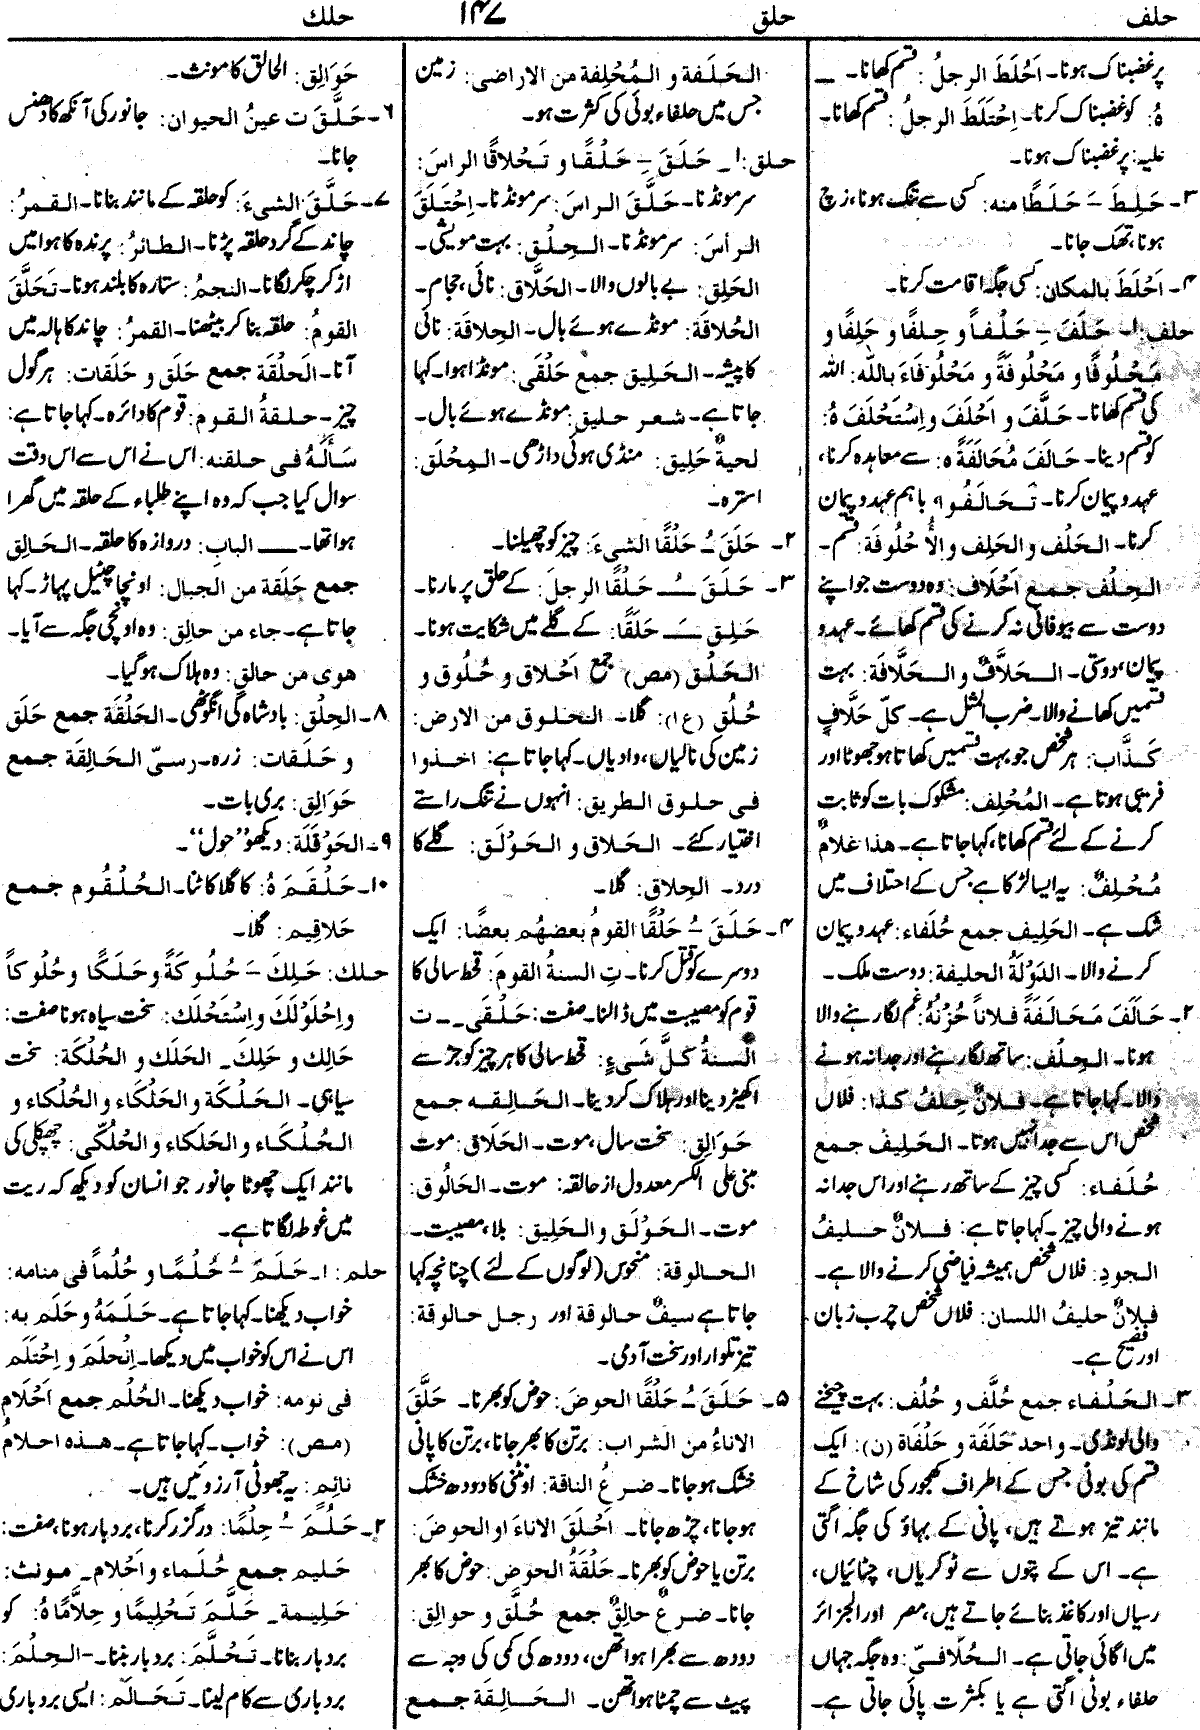 حلف
حلق
۱۴۷
حلك
پر غضبناک ہونا۔ اَحْلَطَ الرجلُ: قسم کھانا۔ ــ
ہُ: کو غضبناک کرنا۔ اِحْتَلَطَ الرجلُ: قسم کھانا۔
علیہ: پر غضبناک ہونا۔
۳۔ حَلِطَ ــَ حَلَطًا منہ: کسی سے تنگ ہونا، زچ
ہونا، تھک جانا۔
۴۔ اَحْلَطَ بالمکان: کسی جگہ اقامت کرنا۔
حلف: ۱۔ حَلَفَ ــِ حَلْفاً و حِلفًا و حَلِفًا و
مَحْلُوفًا و مَحْلُوفَةً و مَحْلُوفَاءَ باللّٰہ: اللہ
کی قسم کھانا۔ حَلَّفَ و اَحْلَفَ و اِسْتَحْلَفَ ہُ:
کو قسم دینا۔ حَالَفَ مُحَالَفَةً ہ: سے معاہدہ کرنا،
عہد و پیمان کرنا۔ تَحَالَفُوا: باہم عہد و پیمان
کرنا۔ الحَلْف و الحَلِف و الأُحْلُوفَة: قسم۔
الحِلْف جمع اَحْلَاف: وہ دوست جو اپنے
دوست سے بیوفائی نہ کرنے کی قسم کھائے۔ عہد و
پیمان، دوستی۔ الحَلَّاف و الحَلَّافَة: بہت
قسمیں کھانے والا۔ ضرب المثل ہے۔ کلّ حَلَّافٍ
کَذَّاب: ہر شخص جو بہت قسمیں کھاتا ہو جھوٹا اور
فریبی ہوتا ہے۔ المُحْلِف: مشکوک بات کو ثابت
کرنے کے لئے قسم کھانا، کہا جاتا ہے۔ ھذا غلامٌ
مُحْلِفٌ: یہ ایسا لڑکا ہے جس کے احتلاف میں
شک ہے۔ الحَلِیف جمع حُلَفاء: عہد و پیمان
کرنے والا۔ الدَوْلَةُ الحلیفة: دوست ملک۔
۲۔ حَالَفَ مَحَالَفَةً فلاناً حُزْنُهُ: غم لگا رہنے والا
ہونا۔ الحِلْف: ساتھ لگا رہنے اور جدا نہ ہونے
والا۔ کہا جاتا ہے۔ فلانٌ حِلفُ کذا: فلاں
شخص اس سے جدا نہیں ہوتا۔ الحَلِیف جمع
حُلَفَاء: کسی چیز کے ساتھ رہنے اور اس جدا نہ
ہونے والی چیز۔ کہا جاتا ہے: فلانٌ حلیفُ
الجودِ: فلاں شخص ہمیشہ فیاضی کرنے والا ہے۔
فلانٌ حلیفُ اللسان: فلاں شخص چرب زبان
اور فصیح ہے۔
۳۔ الحَلْفاء جمع حُلَّف و حُلُف: بہت چیخنے
والی لونڈی۔ واحد حَلَفَة و حَلْفَاة (ن): ایک
قسم کی بوٹی جس کے اطراف کھجور کی شاخ کے
مانند تیز ہوتے ہیں، پانی کے بہاؤ کی جگہ اگتی
ہے۔ اس کے پتوں سے ٹوکریاں، چٹائیاں،
رسیاں اور کاغذ بنائے جاتے ہیں، مصر اور الجزائر
میں اگائی جاتی ہے۔ الحُلَافیّ: وہ جگہ جہاں
حلفاء بوٹی اگتی ہے یا بکثرت پائی جاتی ہے۔
الحَلَفة و المُحْلِفة من الاراضی: زمین
جس میں حلفاء بوٹی کی کثرت ہو۔
حلق: ۱۔ حَلَقَ ــِ حَلْقًا و تَحْلاقًا الراسَ:
سر مونڈنا۔ حَلَّقَ الراسَ: سر مونڈنا۔ اِحْتَلَقَ
الراسَ: سر مونڈنا۔ الحِلْق: بہت مویشی۔
الحَلِق: بے بالوں والا۔ الحَلَّاق: نائی، حجام۔
الحُلاقَة: مونڈے ہوئے بال۔ الحِلاقَة: نائی
کا پیشہ۔ الحَلِیق جمع حَلْقَی: مونڈا ہوا۔ کہا
جاتا ہے۔ شعر حلیق: مونڈے ہوئے بال۔
لحیةٌ حَلِیق: منڈی ہوئی داڑھی۔ المِحْلَق:
استرہ۔
۲۔ حَلَقَ ــُ حَلْقًا الشیءَ: چیز کو چھیلنا۔
۳۔ حَلَقَ ــُ حَلْقًا الرجلَ: کے حلق پر مارنا۔
حَلِقَ ــَ حَلَقًا: کے گلے میں شکایت ہونا۔
الحَلْق (مص) جمع اَحْلاق و حُلُوق و
حُلُق (ع ا): گلا۔ الحلوق من الارض:
زمین کی نالیاں، وادیاں۔ کہا جاتا ہے: اخذوا
فی حلوق الطریق: انہوں نے تنگ راستے
اختیار کئے۔ الحَلاق و الحَوْلَق: گلے کا
درد۔ الحِلاق: گلا۔
۴۔ حَلَقَ ــُ حَلْقًا القومُ بعضھم بعضًا: ایک
دوسرے کو قتل کرنا۔ تِ السنةُ القومَ: قحط سالی کا
قوم کو مصیبت میں ڈالنا۔ صفت: حَلْقَی۔ ــ ت
السنةُ کلَّ شَیءٍ: قحط سالی کا ہر چیز کو جڑ سے
اکھیڑ دینا اور ہلاک کر دینا۔ الحَالِقہ جمع
حَوَالِق: سخت سال، موت۔ الحَلَاق: موت
مبنی علی الکسر معدول از حالقہ: موت۔ الحَالُوق:
موت۔ الحَوْلَق و الحَلِیق: بلا، مصیبت۔
الحالوقة: منحوس (لوگوں کے لئے) چنانچہ کہا
جاتا ہے سیفٌ حالوقة اور رجل حالوقة:
تیز تلوار اور سخت آدمی۔
۵۔ حَلَقَ ــُ حَلْقًا الحوضَ: حوض کو بھرنا۔ حَلَّقَ
الاناءُ من الشراب: برتن کا بھر جانا، برتن کا پانی
خشک ہو جانا۔ ضرعُ الناقة: اونٹنی کا دودھ خشک
ہو جانا، چڑھ جانا۔ اَحْلَقَ الاناءَ او الحوضَ:
برتن یا حوض کو بھرنا۔ حَلْقَةُ الحوض: حوض کا بھر
جانا۔ ضرعٌ حالِقٌ جمع حُلَّق و حوالِق:
دودھ سے بھرا ہوا تھن، دودھ کی کمی کی وجہ سے
پیٹ سے چمٹا ہوا تھن۔ الحَالِقَة جمع
حَوَالِق: الحالق کا مونث۔
۶۔ حَلَّقَ ت عینُ الحیوان: جانور کی آنکھ کا دھنس
جانا۔
۷۔ حَلَّقَ الشیءَ: کو حلقہ کے مانند بنانا۔ القمرُ:
چاند کے گرد حلقہ پڑنا۔ الطائرُ: پرندہ کا ہوا میں
اڑ کر چکر لگانا۔ النجمُ: ستارہ کا بلند ہونا۔ تَحَلَّقَ
القومُ: حلقہ بنا کر بیٹھنا۔ القمرُ: چاند کا ہالہ میں
آنا۔ الحَلْقَة جمع حَلَق و حَلَقات: ہر گول
چیز۔ حلقةُ القوم: قوم کا دائرہ۔ کہا جاتا ہے:
سَأَلَهُ فی حلقته: اس نے اس سے اس وقت
سوال کیا جب کہ وہ اپنے طلباء کے حلقہ میں گھرا
ہوا تھا۔ ــــ البابِ: دروازہ کا حلقہ۔ الحَالِق
جمع حَلَقة من الجبال: اونچا چٹیل پہاڑ۔ کہا
جاتا ہے۔ جاء من حالِق: وہ اونچی جگہ سے آیا۔
ھوی من حالق: وہ ہلاک ہو گیا۔
۸۔ الحِلْق: بادشاہ کی انگوٹھی۔ الحَلْقَة جمع حَلَق
و حَلَقات: زرہ۔ رسیّ الحَالِقَة جمع
حَوَالِق: بری بات۔
۹۔ الحَوْقَلَة: دیکھو ”حول“۔
۱۰۔ حَلْقَمَ ہُ: کا گلا کاٹنا۔ الحُلْقُوم جمع
حَلاقِیم: گلا۔
حلك: حَلِكَ ــَ حُلُوكَةً و حَلَكًا و حُلُوكاً
و اِحْلَوْلَكَ و اِسْتَحْلَكَ: سخت سیاہ ہونا صفت:
حَالِك و حَلِك۔ الحَلَك و الحُلْكَة: سخت
سیاہی۔ الحَلْكَة و الحَلْكَاء و الحُلَكاء و
الحُلْكَاء و الحَلَكاء و الحُلْكّى: چھپکلی کی
مانند ایک چھوٹا جانور جو انسان کو دیکھ کہ ریت
میں غوطہ لگاتا ہے۔
حلم: ۱۔ حَلَمَ ــُ حُلْمًا و حُلُماً فی منامه:
خواب دیکھنا۔ کہا جاتا ہے۔ حَلَمَهُ و حَلَم به:
اس نے اس کو خواب میں دیکھا۔ اِنْحلَمَ و اِحْتَلَم
فی نومه: خواب دیکھنا۔ الحُلْم جمع اَحْلَام
(مص): خواب۔ کہا جاتا ہے۔ ھذہ احلامُ
نائِمٍ: یہ جھوٹی آرزوئیں ہیں۔
۲۔ حَلُمَ ــُ حِلْمًا: درگزر کرنا، بردبار ہونا، صفت:
حَلیم جمع حُلَماء و اَحْلام۔ مونث:
حَلِیمة۔ حَلَّمَ تَحْلِیمًا و حِلَّامًا ہُ: کو
بردبار بنانا۔ تَحَلَّمَ: بردبار بننا۔ الحِلْمَ:
بردباری سے کام لینا۔ تَحَالَمَ: ایسی بردباری